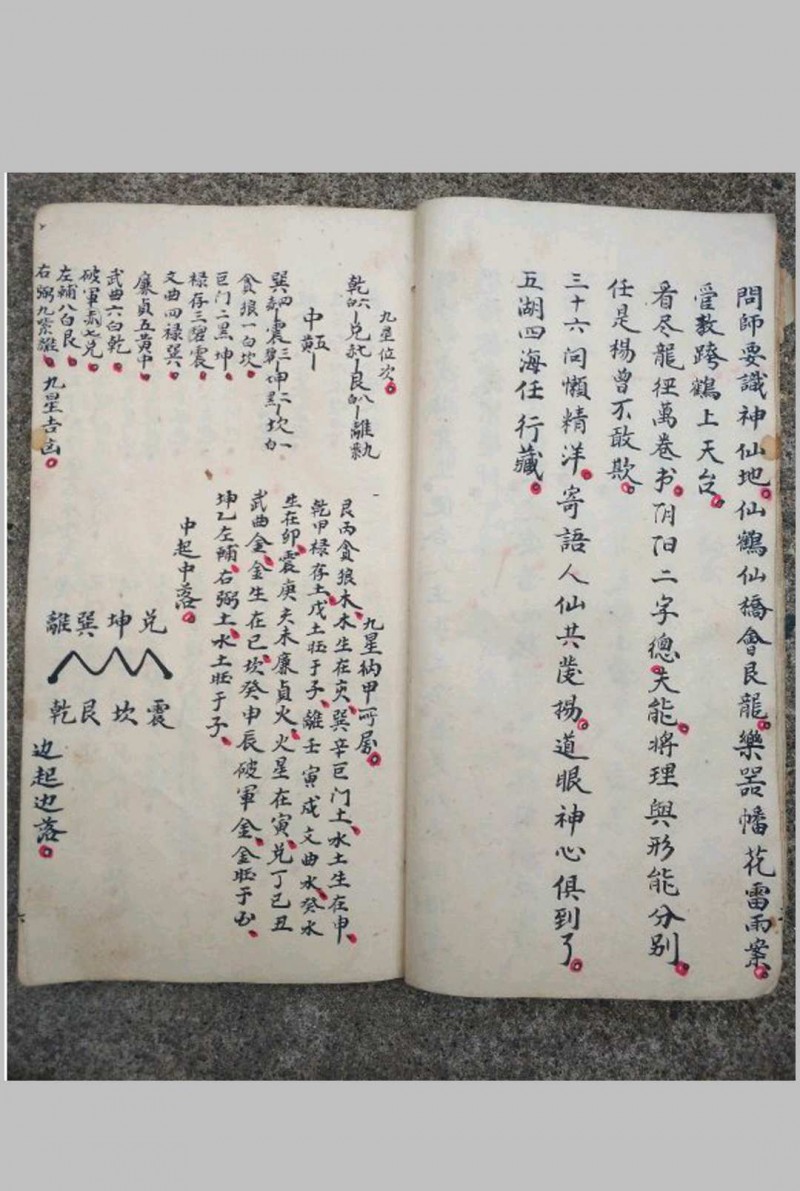 問師要識神仙地仙鶴仙橋會艮龍樂器幡花雷雨案
管教跨鶴上天台
看尽龍經萬卷书阴阳二字總夫能将理與形能分别
任是楊曾不敢欺
三十六问懒精洋寄語人仙共茂揚道眼神心俱到了
五湖四海任行藏
九星位次
乾六白一兑七赤一艮八白一離九
中五黄一
巽四 震三 坤二 坎一
貪狼一白坎
巨门二黑坤
禄存三碧震
文曲四禄巽
廉貞五黄中
武曲六白乾
破軍赤七兑
左輔八白艮
右弼九紫離
九星吉凶
九星納甲所属
艮丙貪狼木木生在亥巽辛巨门土水土生在申
乾甲禄存土戊土旺于子離壬寅戌文曲水癸水
生在卯震庚亥未廉貞火火星在寅兑丁巳丑
武曲金金生在巳坎癸申辰破軍金金旺于酉
坤乙左輔右弼土水土旺于子
中起中落
離巽坤兑
乾艮坎震
边起边落